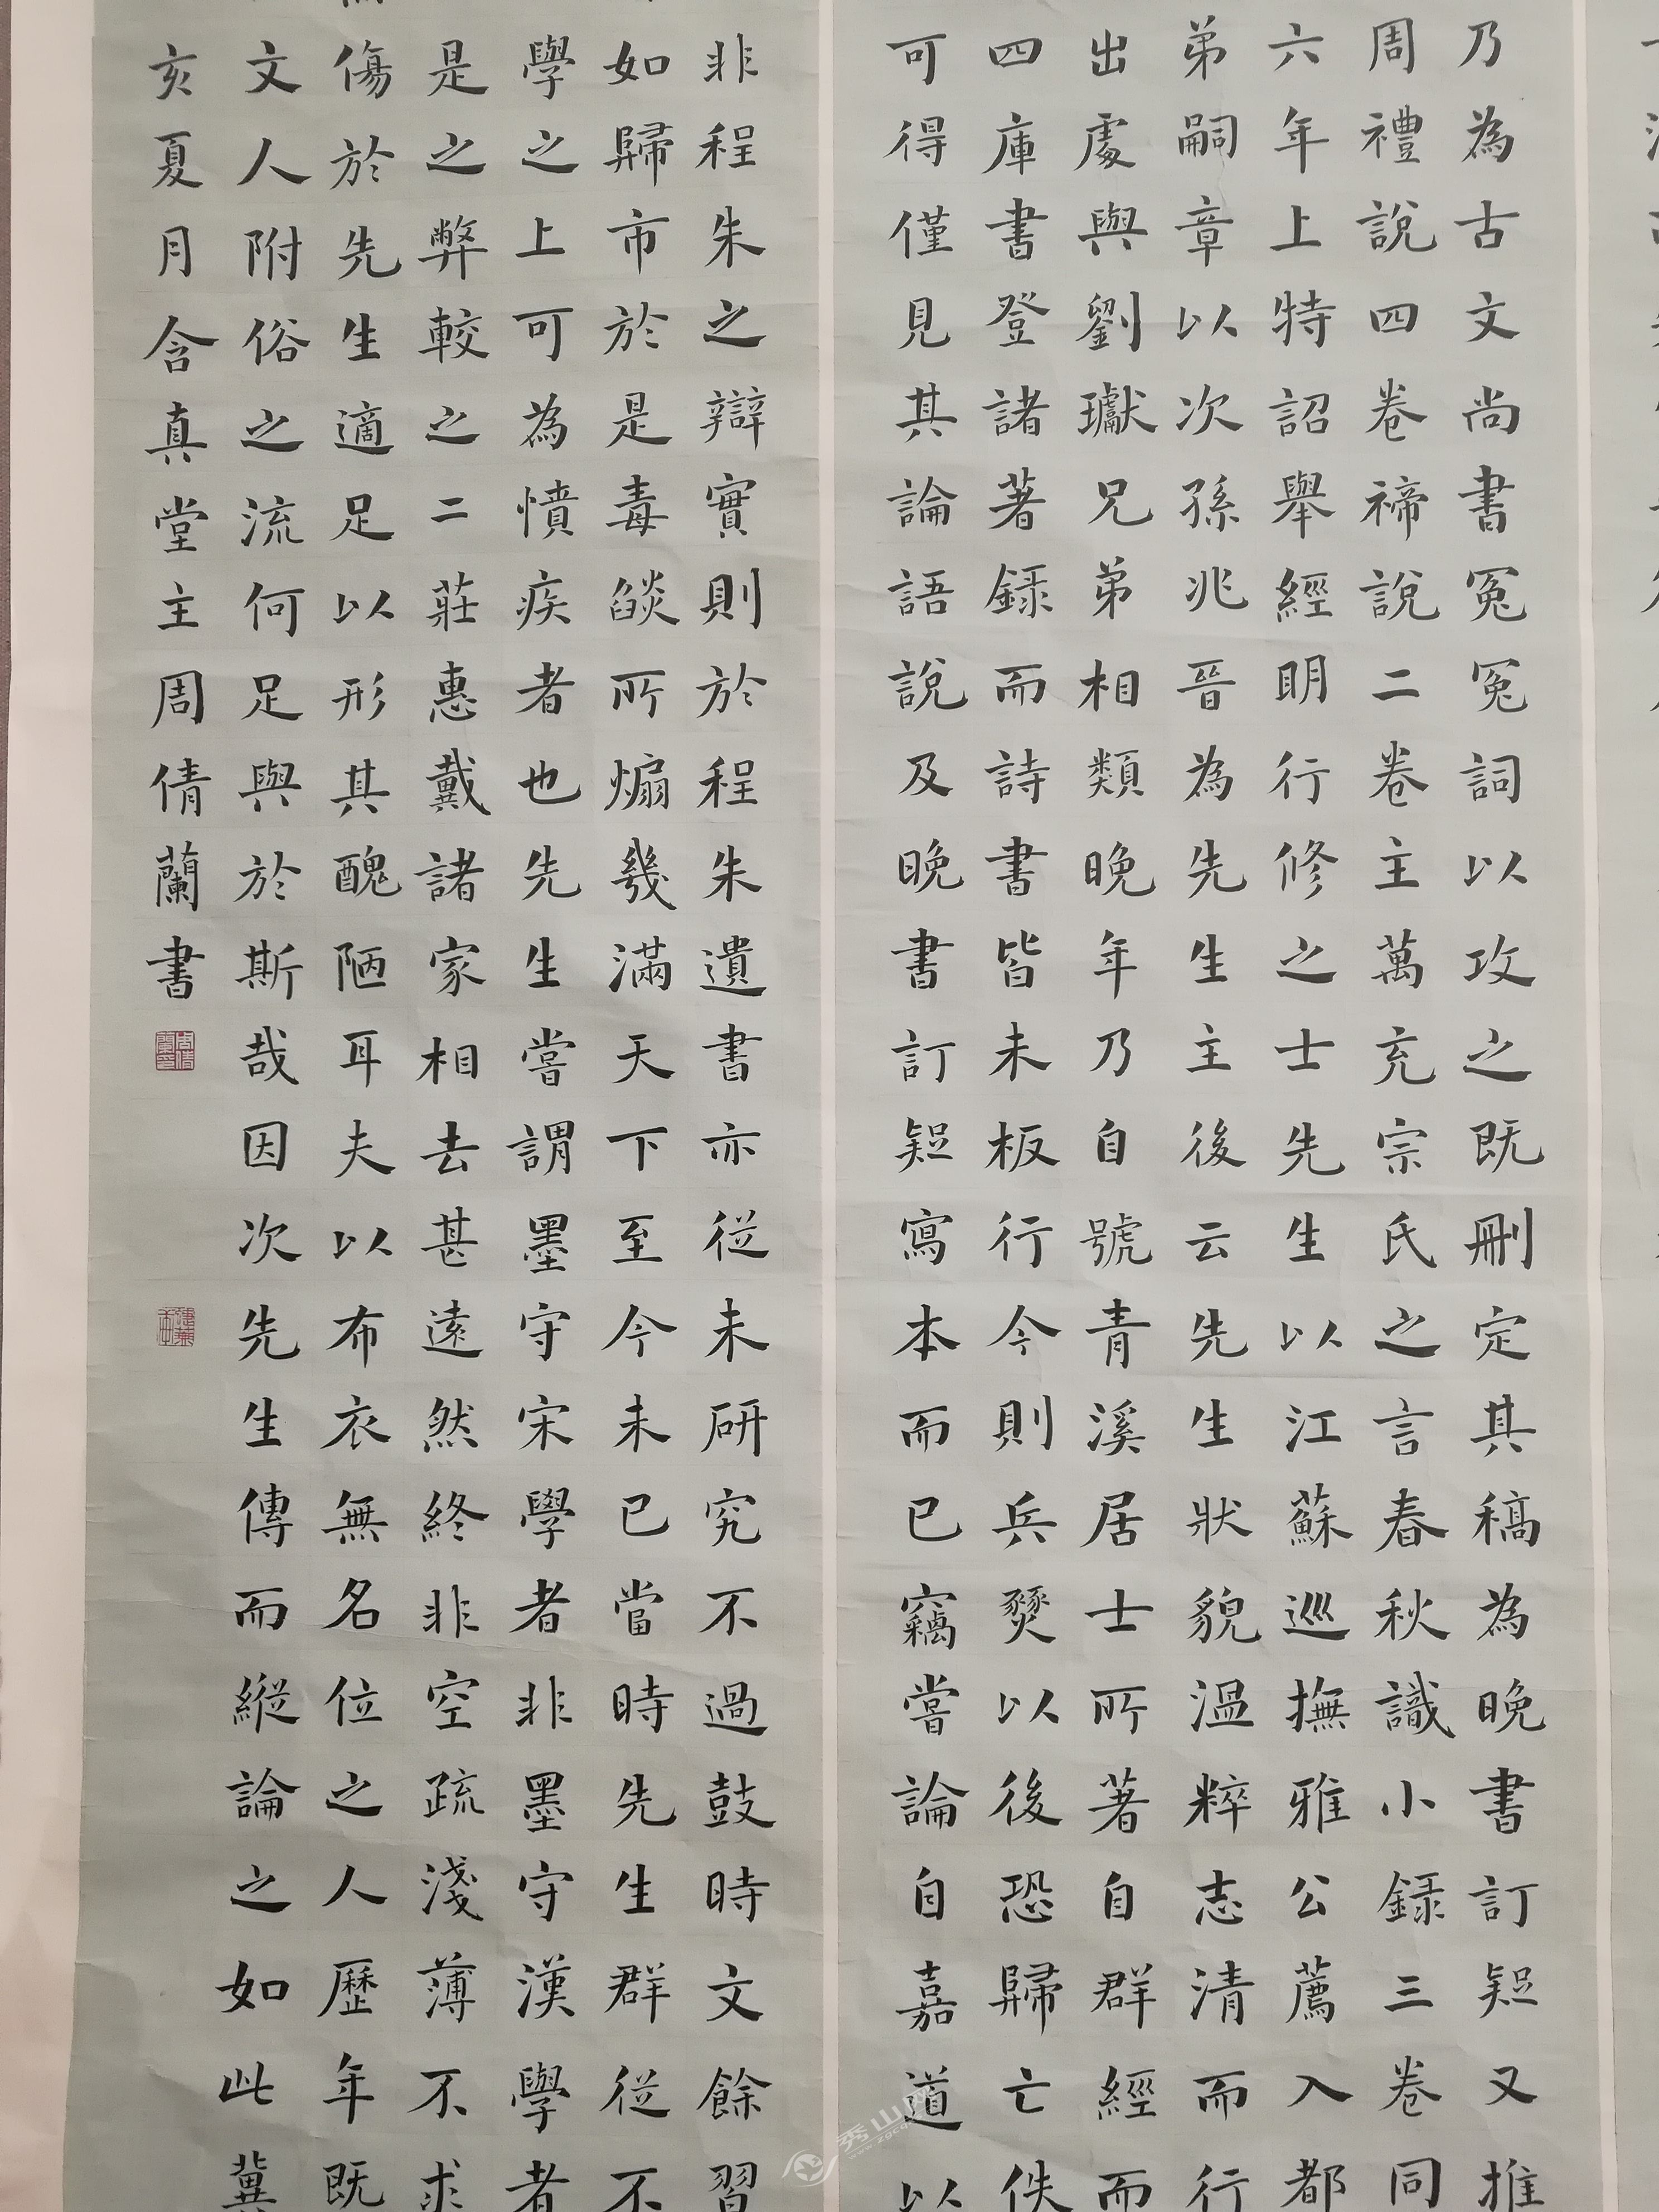 乃為古文尚書冤冤詞以攻之既刪定其稿為晚書訂疑又推
周禮說四卷禘說二卷主萬充宗氏之言春秋識小録三卷同
六年上特詔舉經明行修之士先生以江蘇巡撫雅公薦入都
弟嗣章以次孫兆晉為先生主後云先生狀貌溫粹志清而行
出處與劉瓛兄弟相類晚年乃自號青溪居士所著自群經而
四庫書登諸著録而詩書皆未板行今則兵燹以後恐歸亡佚
可得僅見其論語說及晚書訂疑寫本而已竊嘗論自嘉道以
非程朱之辯實則於程朱遺書亦從未研究不過鼓時文餘習
如歸市於是毒燄所煽幾滿天下至今未已當時先生群從不
學之上可為憤疾者也先生嘗謂墨守宋學者非墨守漢學者
是之弊較之二莊惠戴諸家相去甚遠然終非空疏淺薄不求
傷於先生適足以形其醜陋耳夫以布衣無名位之人歷年既
文人附俗之流何足與於斯哉因次先生傳而縱論之如此冀
亥夏月含真堂主周倩蘭書
周倩蘭印
秀山网